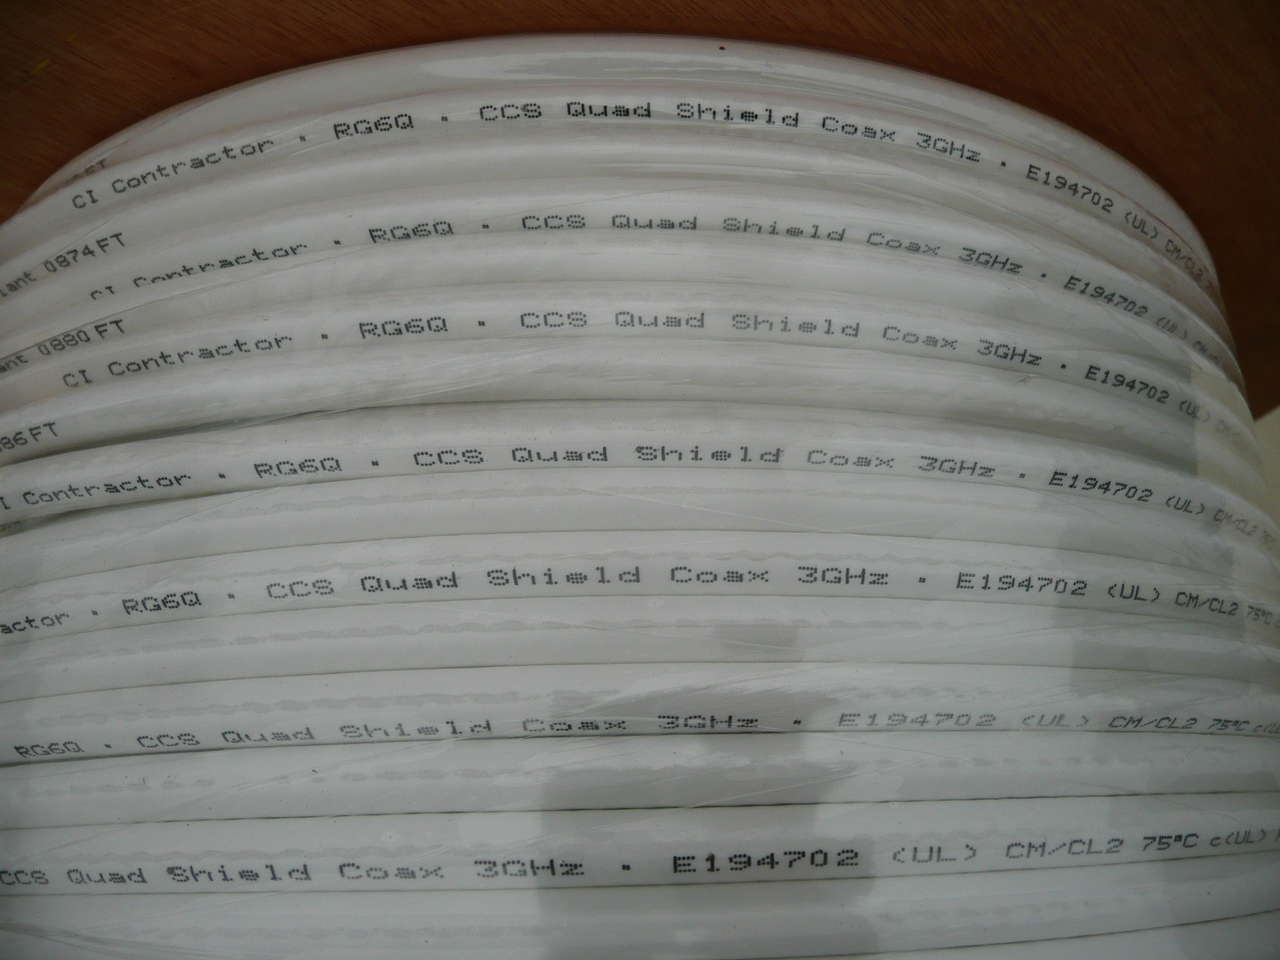 FT
CI Contractor • RG6Q • CCS Quad Shield Coax 3GHz • E194702 (UL) CM/CL2
0874FT
CI Contractor • RG6Q • CCS Quad Shield Coax 3GHz • E194702 (UL)
0880FT
CI Contractor • RG6Q • CCS Quad Shield Coax 3GHz • E194702 (UL)
86FT
I Contractor • RG6Q • CCS Quad Shield Coax 3GHz • E194702 (UL) CM/CL2
actor • RG6Q • CCS Quad Shield Coax 3GHz • E194702 (UL) CM/CL2 75°C
RG6Q • CCS Quad Shield Coax 3GHz • E194702 (UL) CM/CL2 75°C c(UL
CCS Quad Shield Coax 3GHz • E194702 (UL) CM/CL2 75°C c(UL)